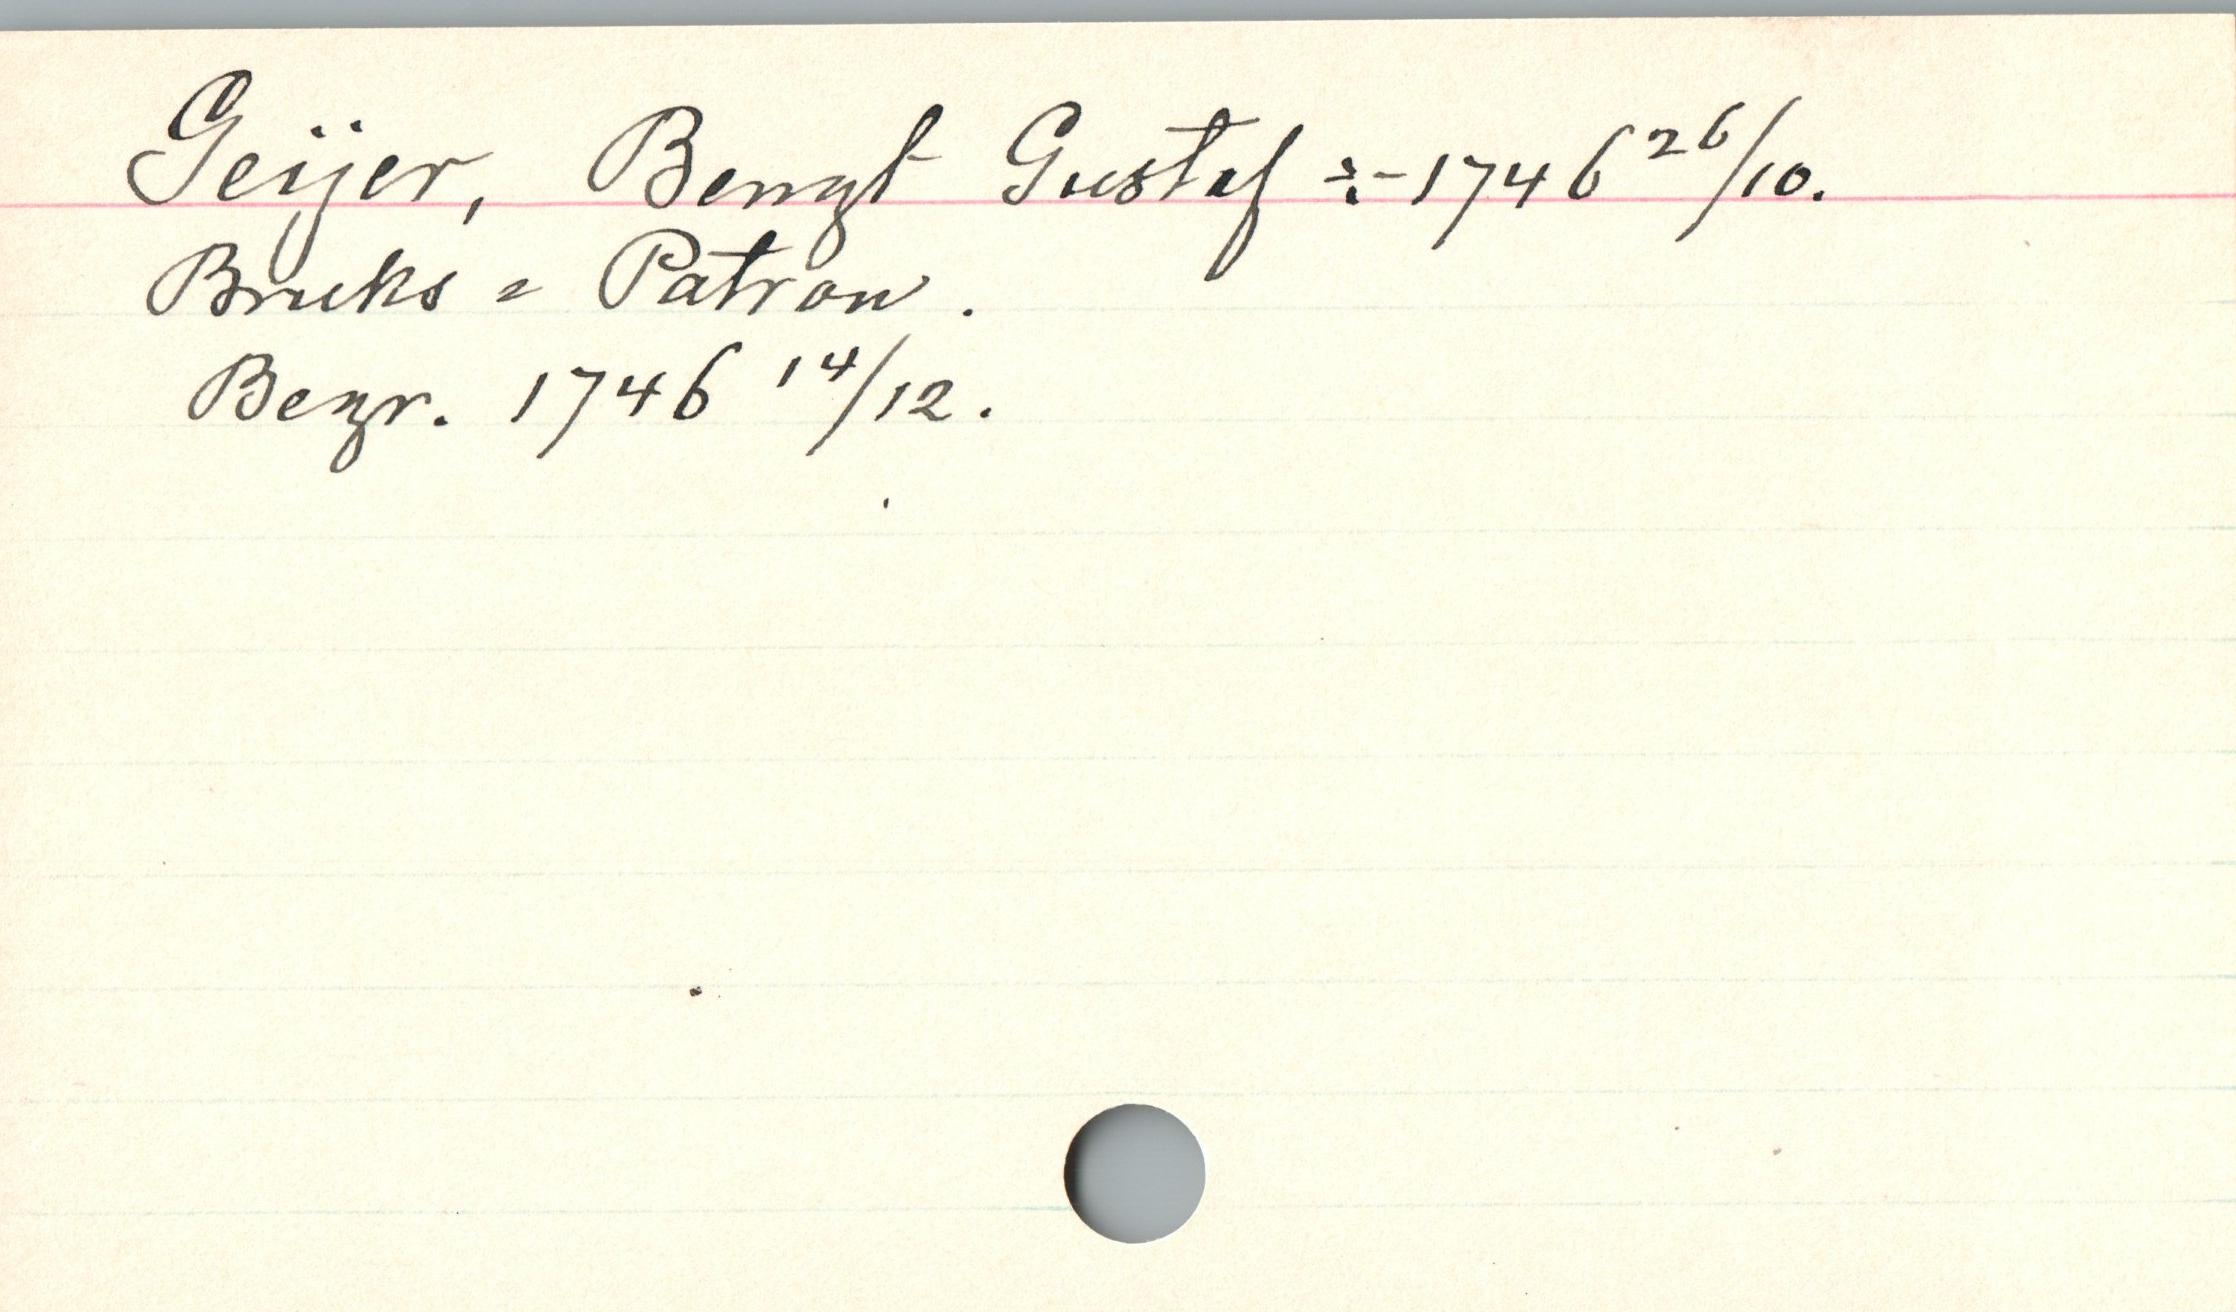 Geijer, Bengt Gustaf ÷-1746 26/10.
Bruks = Patron.
Begr. 1746 14/12.